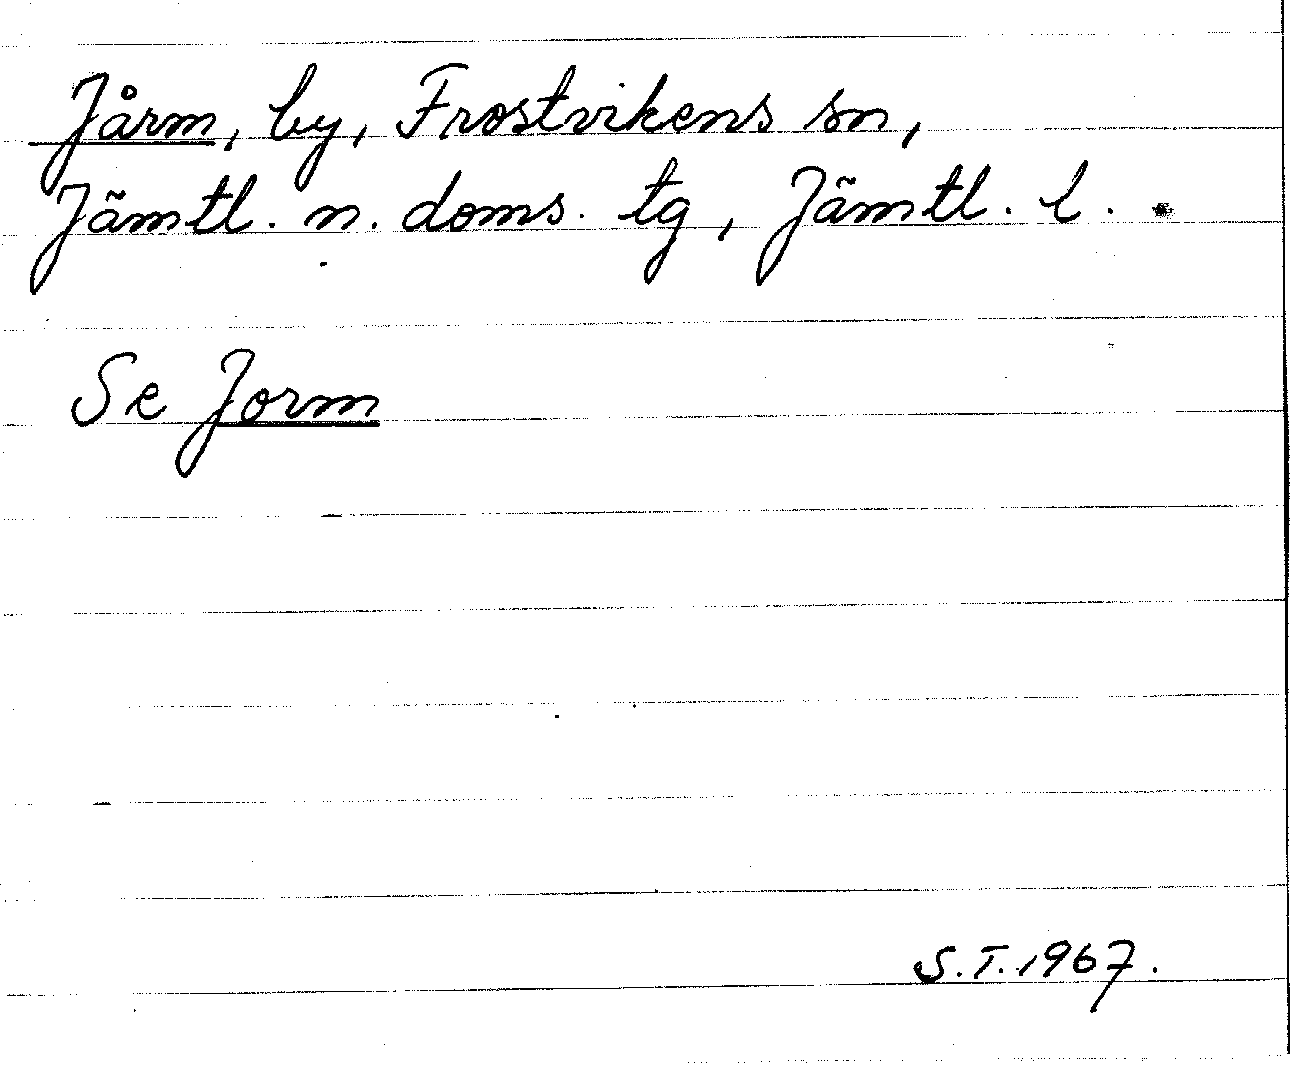 Jårm, by, Frostvikens sn,
Jämtl. n. doms. tg, Jämtl. l.
Se Jorm
S.T. 1967.